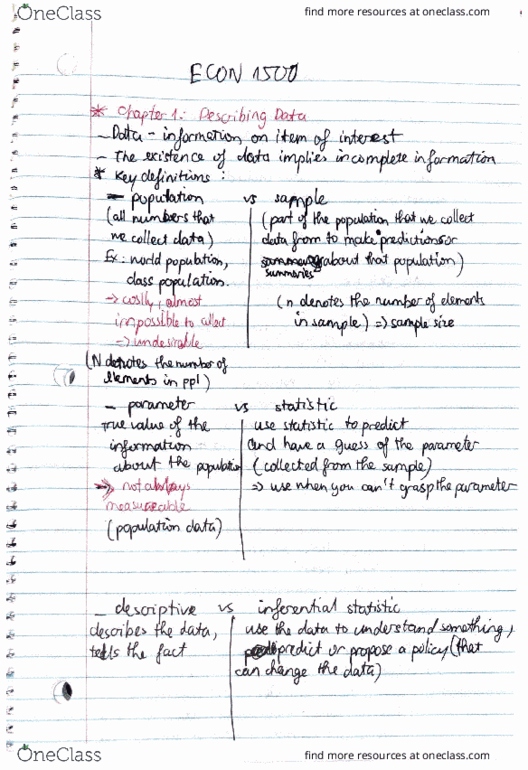 OneClass find more resources at oneclass.com
ECON 1500
* Chapter 1: Describing Data
- Data - information on item of interest
- The existence of data implies incomplete information
* Key definitions:
- population vs sample
(all numbers that (part of the population that we collect
we collect data) data from to make predictions or
Ex: world population, summaries about that population)
class population.
=> costly, almost (n denotes the number of elements
impossible to collect in sample) => sample size
=> undesirable
(N denotes the number of
elements in ppl)
- parameter vs statistic
true value of the use statistic to predict
information and have a guess of the parameter
about the population (collected from the sample)
=> not always => use when you can't grasp the parameter
measureable
(population data)
- descriptive vs inferential statistic
describes the data, use the data to understand something,
tells the fact predict or propose a policy (that
can change the data)
OneClass find more resources at oneclass.com